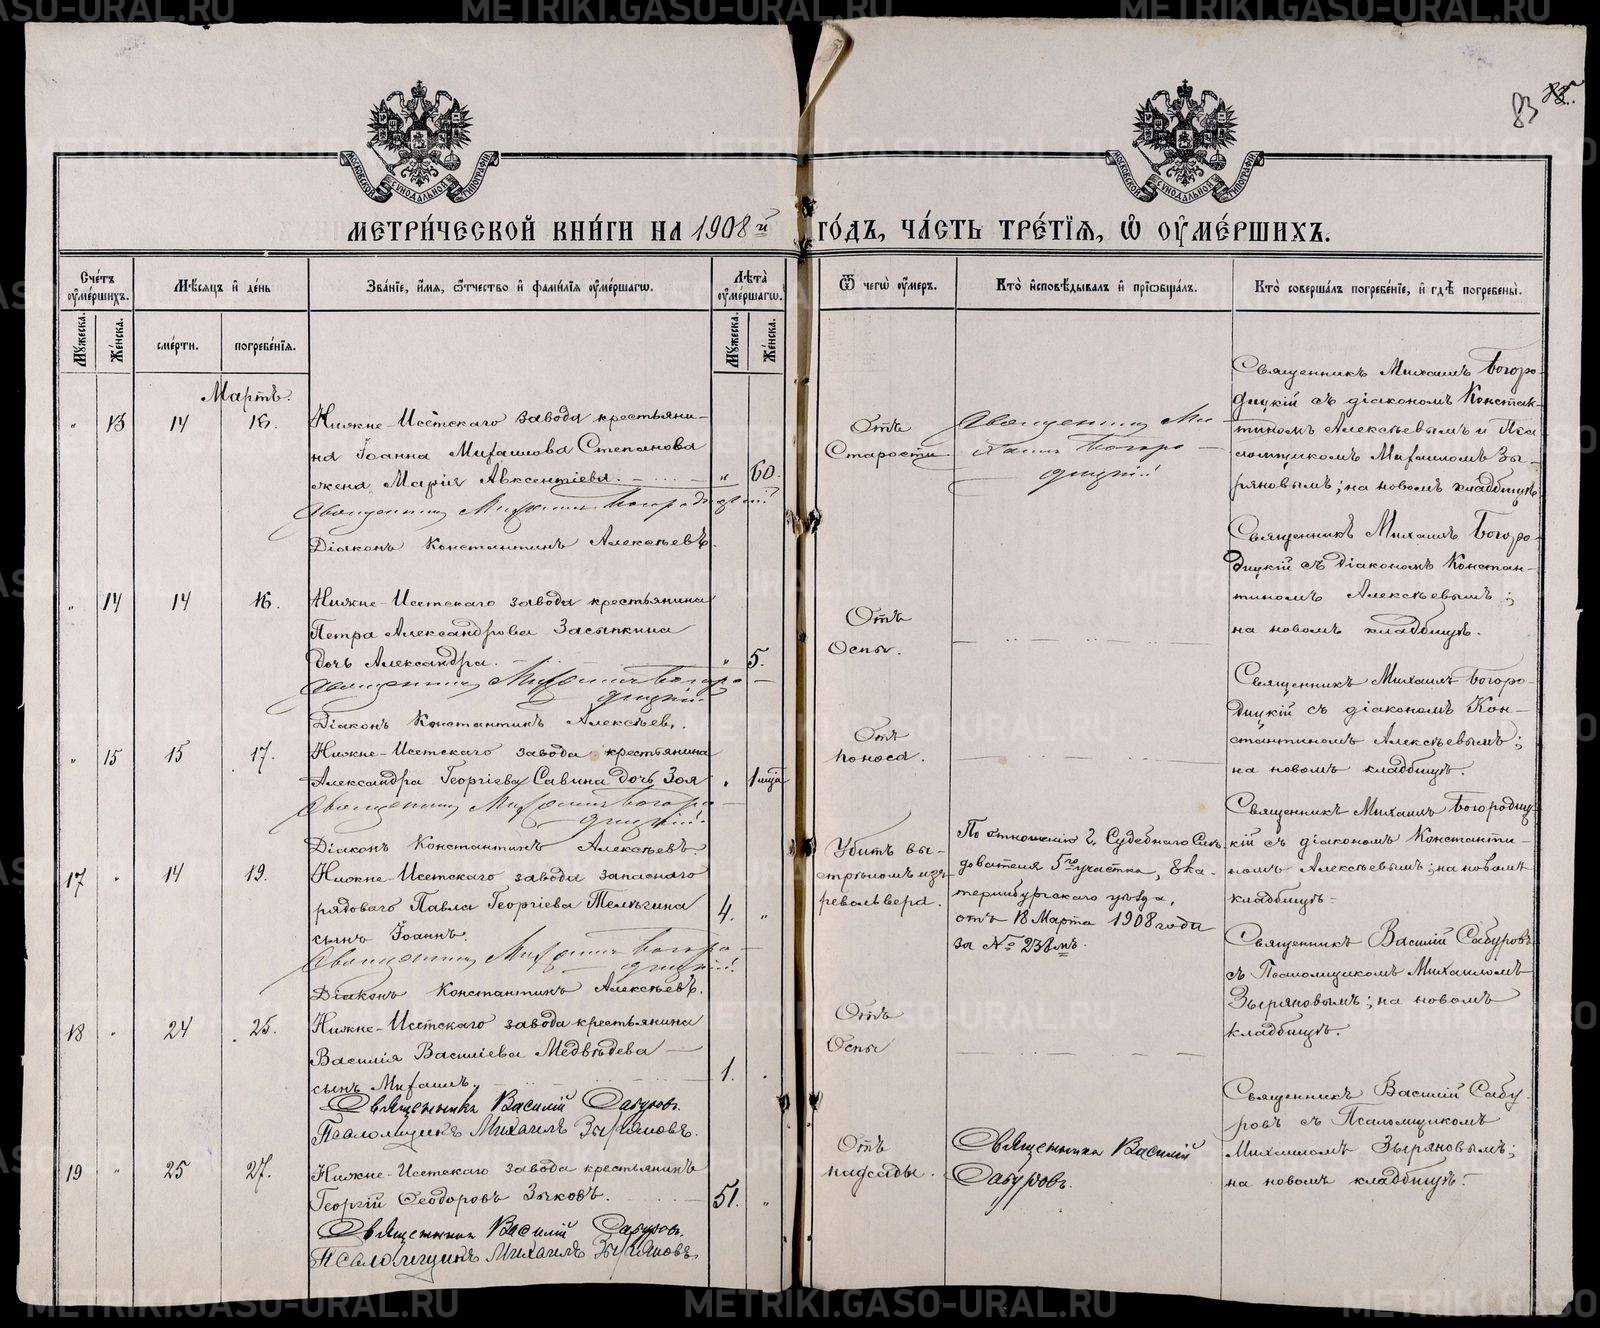 METRIKI.GASO-URAL.RU
83
МОСКОВСКОЙ СУНОДАЛЬНОЙ ТИПОГРАФІИ
МОСКОВСКОЙ СУНОДАЛЬНОЙ ТИПОГРАФІИ
МЕТРИ́ЧЕСКОЙ КНИ́ГИ НА 1908й ГО́ДЪ, ЧА́СТЬ ТРЕ́ТІЯ, Ѡ ОУМЕ́РШИХЪ.
Сче́тъ оуме́ршихъ.
Мѣсяцъ и де́нь
Зва́ніе, и́мя, ѻ҆́тчество и фами́лія оуме́ршагѡ.
Лѣта̀ оуме́ршагѡ.
Ѿ чегѡ̀ оу́меръ.
Кто̀ и҆сповѣ́дывалъ и҆ прїѡбща́лъ.
Кто̀ соверша́лъ погребе́ніе, и҆ гдѣ̀ погребены̀.
Му́жеска.
Же́нска.
сме́рти.
погребе́нія.
Му́жеска.
Же́нска.
Мартъ.
" 13 14 16.
Нижне-Исетскаго завода крестьяни-
на Іоанна Михаилова Степанова
жена Марія Авксентіева. " 60.
Священникъ Михаилъ Богородицкій
Діаконъ Константинъ Алексѣевъ.
Отъ
Старости
Священникъ Ми-
хаилъ Богоро-
дицкій
Священникъ Михаилъ Богоро-
дицкій съ діакономъ Констан-
тиномъ Алексѣевымъ и Пса
ломщикомъ Михаиломъ Зы-
ряновымъ; на новомъ кладбищѣ
" 14 14 16.
Нижне-Исетскаго завода крестьянина
Петра Александрова Засыпкина
дочь Александра. " 5.
Священникъ Михаилъ Богоро-
дицкій
Діаконъ Константинъ Алексѣевъ.
Отъ
Оспы.
Священникъ Михаилъ Богоро-
дицкій съ діакономъ Констан-
тиномъ Алексѣевымъ;
на новомъ кладбищѣ.
" 15 15 17.
Нижне-Исетскаго завода крестьянина
Александра Георгіева Савина дочь Зоя " 1 мца
Священникъ Михаилъ Богоро-
дицкій
Діаконъ Константинъ Алексѣевъ.
Отъ
поноса.
Священникъ Михаилъ Богоро-
дицкій съ діакономъ Кон-
стантиномъ Алексѣевымъ;
на новомъ кладбищѣ.
17 " 14 19.
Нижне-Исетскаго завода запаснаго
рядоваго Павла Георгіева Телѣгина 4. "
сынъ Іоаннъ.
Священникъ Михаилъ Богоро-
дицкій
Діаконъ Константинъ Алексѣевъ.
Убитъ вы-
стрѣломъ изъ
револьвера.
По отношенію г. Судебнаго Слѣ-
дователя 5го участка, Ека-
теринбургскаго уѣзда,
отъ 18 Марта 1908 года
за № 238мъ.
Священникъ Михаилъ Богородиц-
кій съ діакономъ Константи-
номъ Алексѣевымъ; на новомъ
кладбищѣ.
18 " 24 25.
Нижне-Исетскаго завода крестьянина
Василія Василіева Медвѣдева
сынъ Михаилъ. 1. "
Священникъ Василій Сабуровъ.
Псаломщикъ Михаилъ Зыряновъ.
Отъ
Оспы
Священникъ Василій Сабуровъ
съ Псаломщикомъ Михаиломъ
Зыряновымъ; на новомъ
кладбищѣ.
19 " 25 27.
Нижне-Исетскаго завода крестьянинъ
Георгій Ѳеодоровъ Зыковъ. 51. "
Священникъ Василій Сабуровъ.
Псаломщикъ Михаилъ Зыряновъ.
Отъ
надсады.
Священникъ Василій
Сабуровъ.
Священникъ Василій Сабу-
ровъ съ Псаломщикомъ
Михаиломъ Зыряновымъ;
на новомъ кладбищѣ.
METRIKI.GASO-URAL.RU